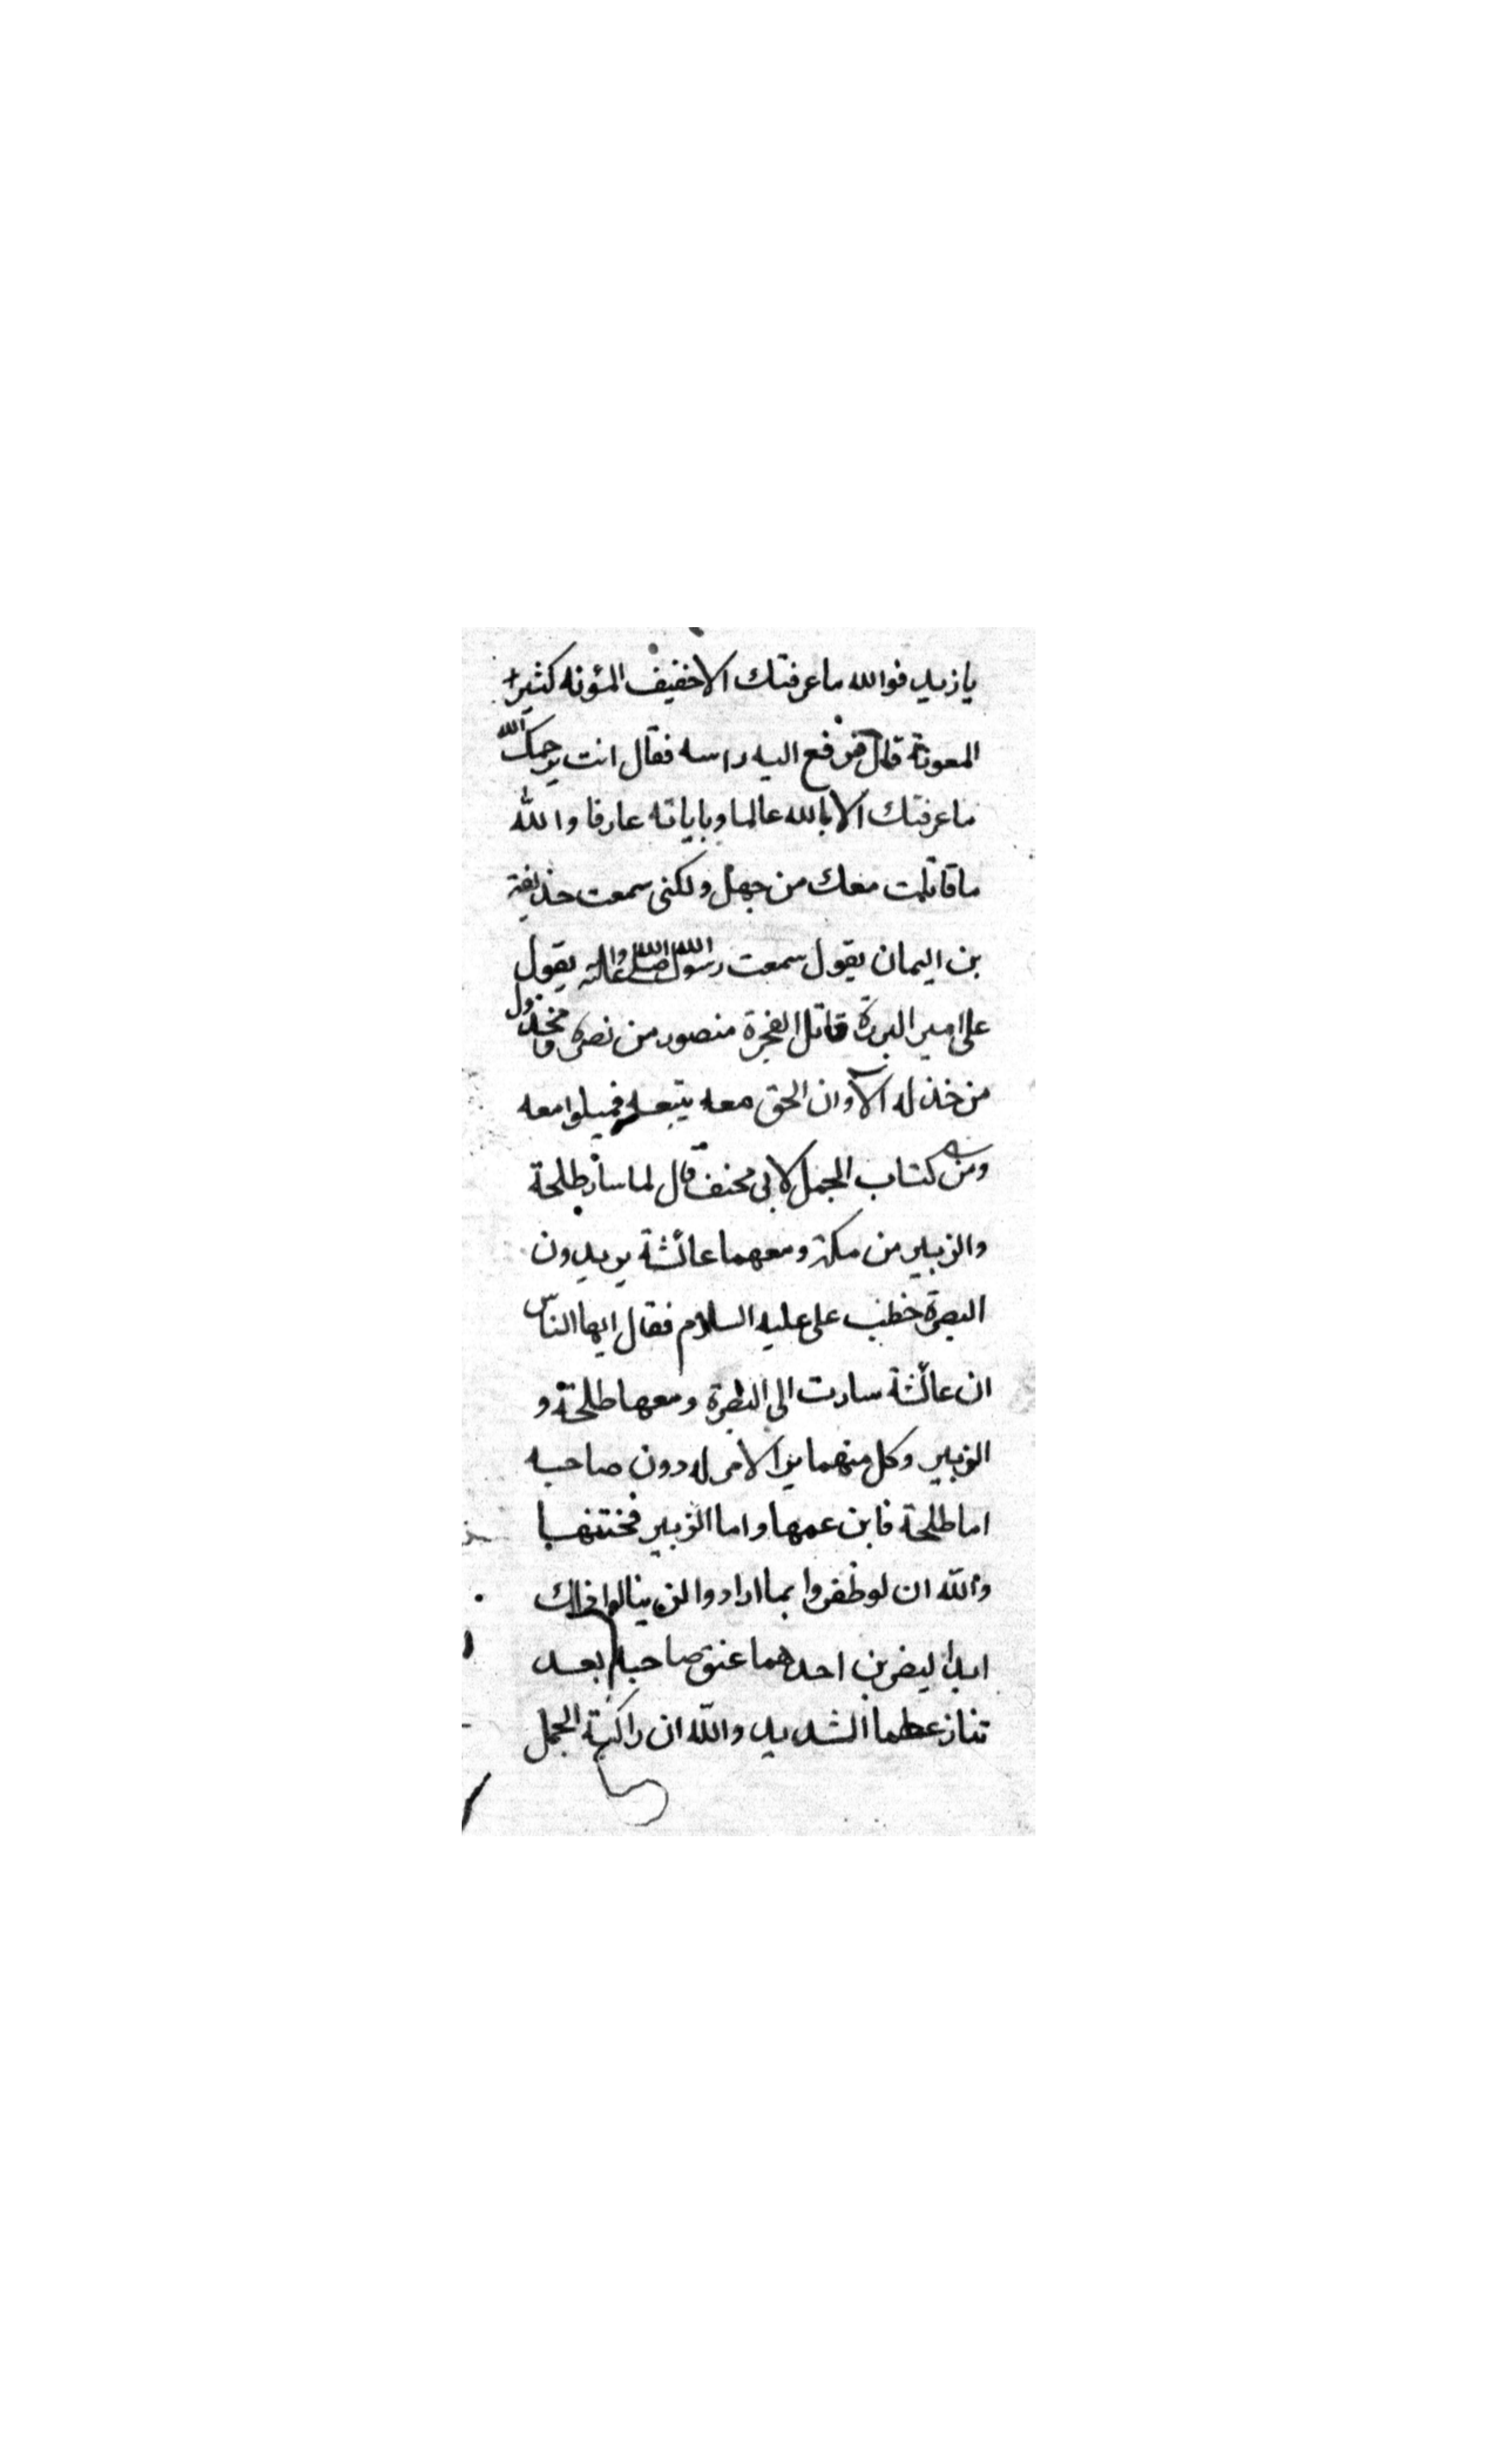 يا زيد فوالله ما عرفتك الا خفيف المؤنه كثير
المعونة قال فرفع اليه راسه فقال انت يرحمك الله
ما عرفتك الا بالله عالما وباياته عارفا والله
ما قاتلت معك من جهل ولكنى سمعت حذيفة
بن اليمان يقول سمعت رسول الله صلى الله عليه واله يقول
على امير البررة قاتل الفجرة منصور من نصره ومخذول
من خذله الا وان الحق معه يتبعه فميلوا معه
ومن كتاب الجمل لابى مخنف قال لما سار طلحة
والزبير من مكة ومعهما عائشة يريدون
البصرة خطب على عليه السلام فقال ايها الناس
ان عائشة سارت الى البصرة ومعها طلحة و
الزبير وكل منهما يرا الامر له دون صاحبه
اما طلحة فابن عمها واما الزبير فختنها
والله ان لو ظفروا بما ارادوا لن ينالوا ذلك
ابدا ليضربن احدهما عنق صاحبه بعد
تنازعهما الشديد والله ان راكبة الجمل